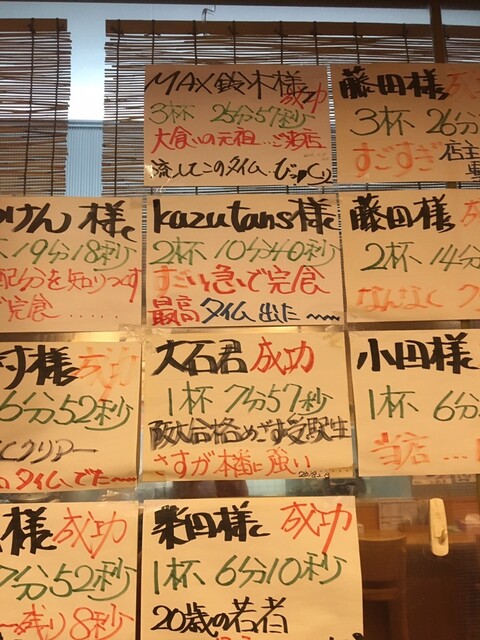 MAX鈴木様 成功
3杯 25分57秒
大食いの元祖…ご来店
流してこのタイム びっくり
藤田様 成
3杯 26分
すごすぎ 店主
けん 様
19分18秒
配分を知りつす
完食……
kazutans様
2杯 10分40秒
すごい急いで完食
最高タイム出た〜
藤田様
2杯 14分
なんなく ク
村様 成功
6分52秒
クリアー
タイムでた〜
大石君 成功
1杯 7分57秒
阪大合格めざす受験生
さすが本番に強い
小田様
1杯 6分
当店…
様 成功
7分52秒
残り8秒
柴田様 成功
1杯 6分10秒
20歳の若者